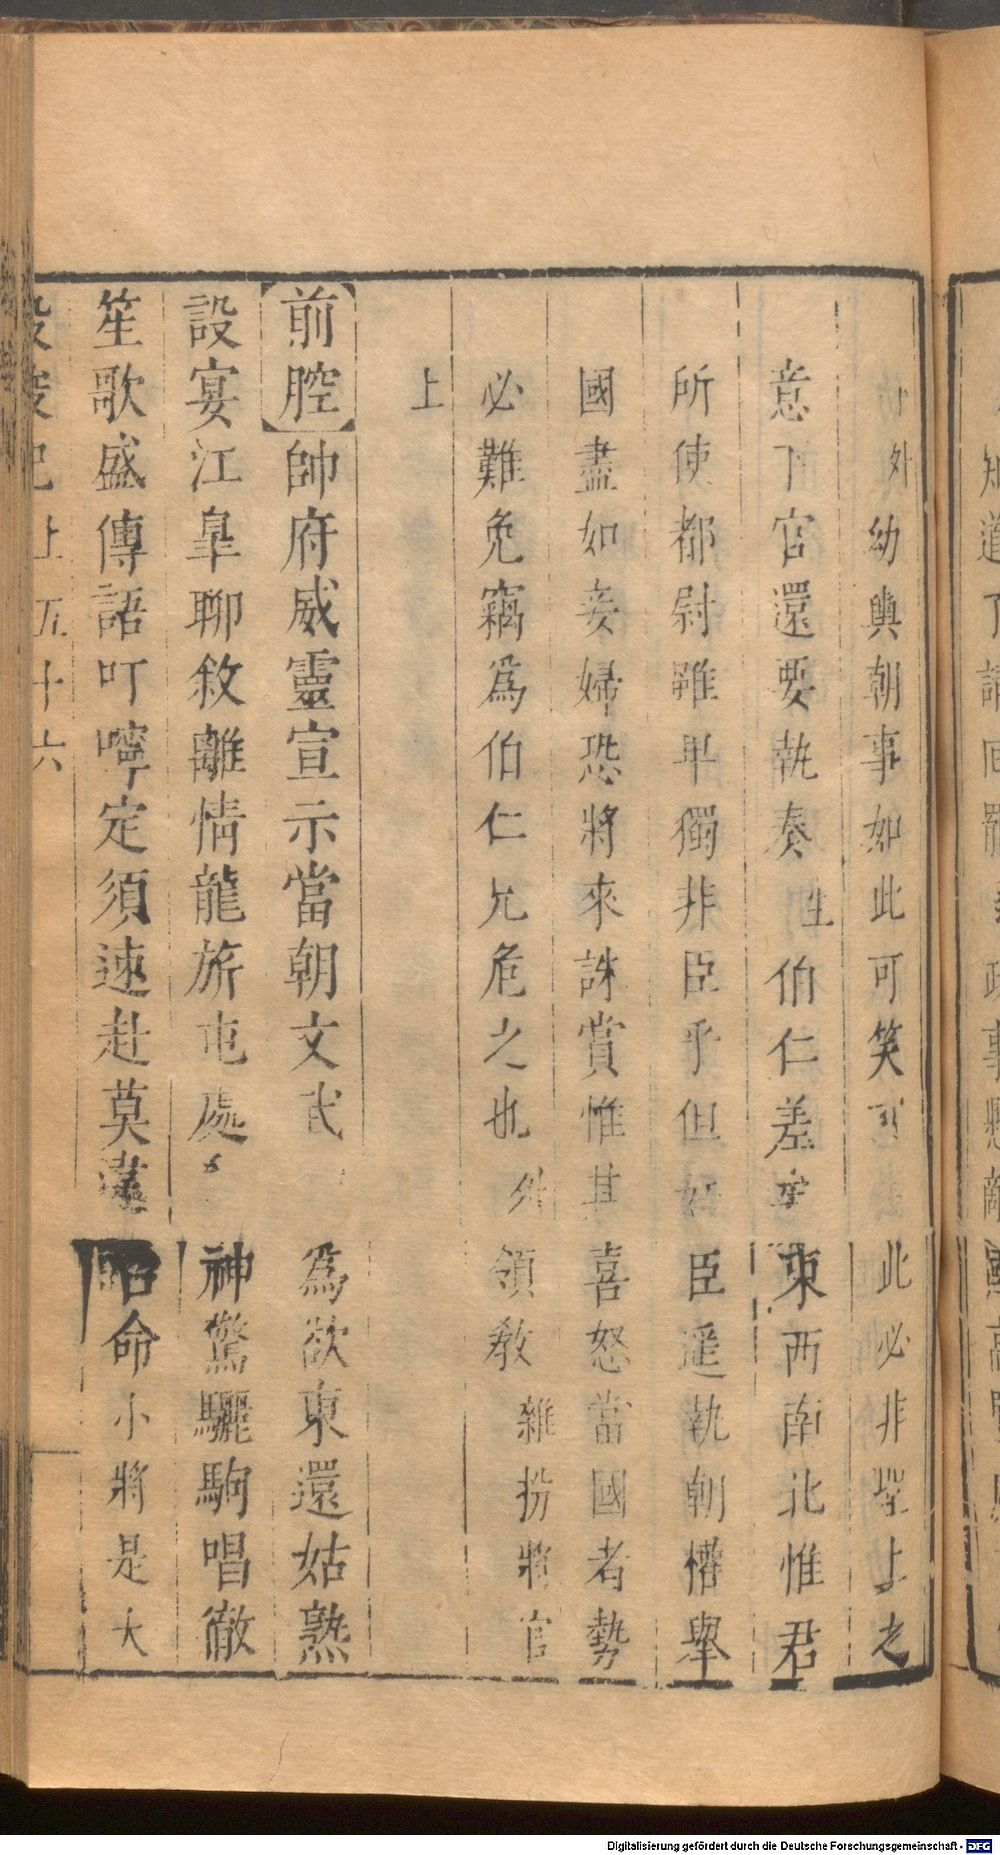 外幼輿朝事如此可笑可此必非聖上之
意下官還要執奏生伯仁差矣東西南北惟君
所使都尉雖卑獨非臣乎但奸臣遥執朝權舉
國盡如妾婦恐將來誅賞惟其喜怒當國者勢
必難免竊為伯仁兄危之也外領敎雜扮將官
上
前腔帥府威靈宣示當朝文武為欲東還姑熟
設宴江皐聊敘離情龍旂屯處神驚驪駒唱徹
笙歌盛傳語叮嚀定須速赴莫違昭命小將是大
投梭記上五十六
Digitalisierung gefördert durch die Deutsche Forschungsgemeinschaft - DFG